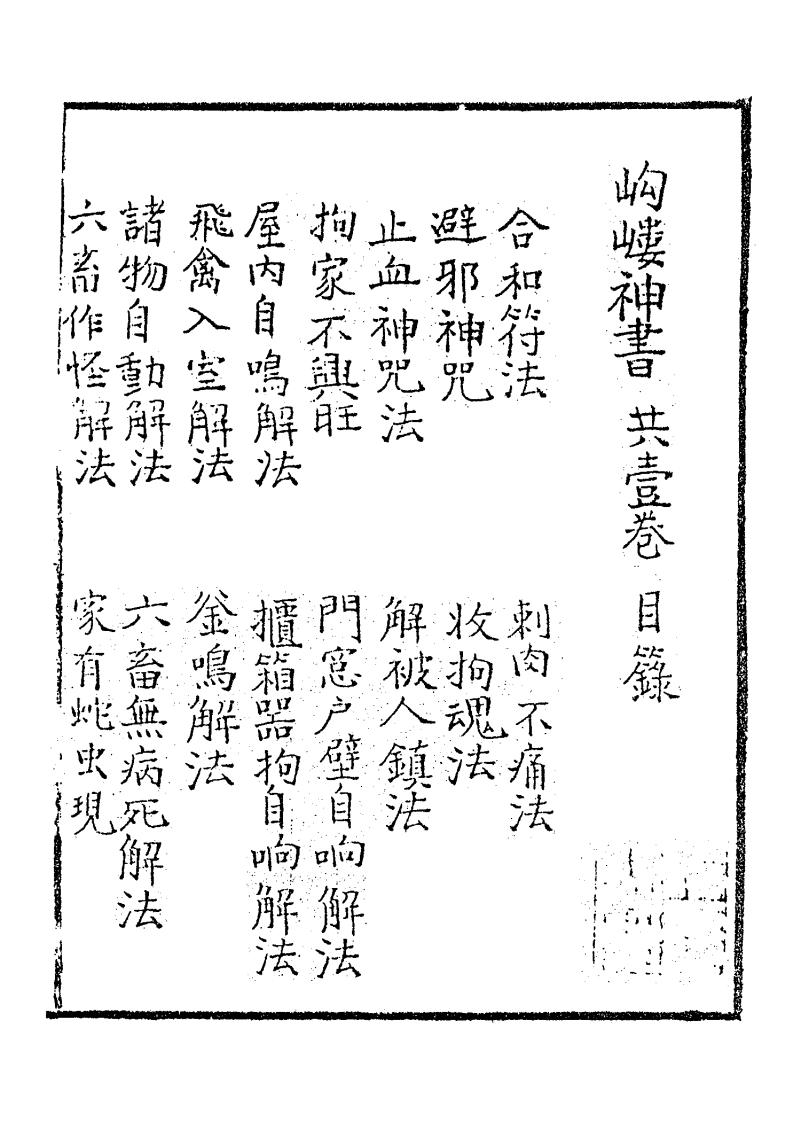 岣嶁神書 共壹巻 目籙
合和符法 刺肉不痛法
避邪神咒 收拘魂法
止血神咒法 解被人鎮法
拘家不興旺 門窓户壁自响解法
屋内自鳴解法 櫃箱器拘自响解法
飛禽入室解法 釜鳴解法
諸物自動解法 六畜無病死解法
六畜作怪解法 家有蛇虫現